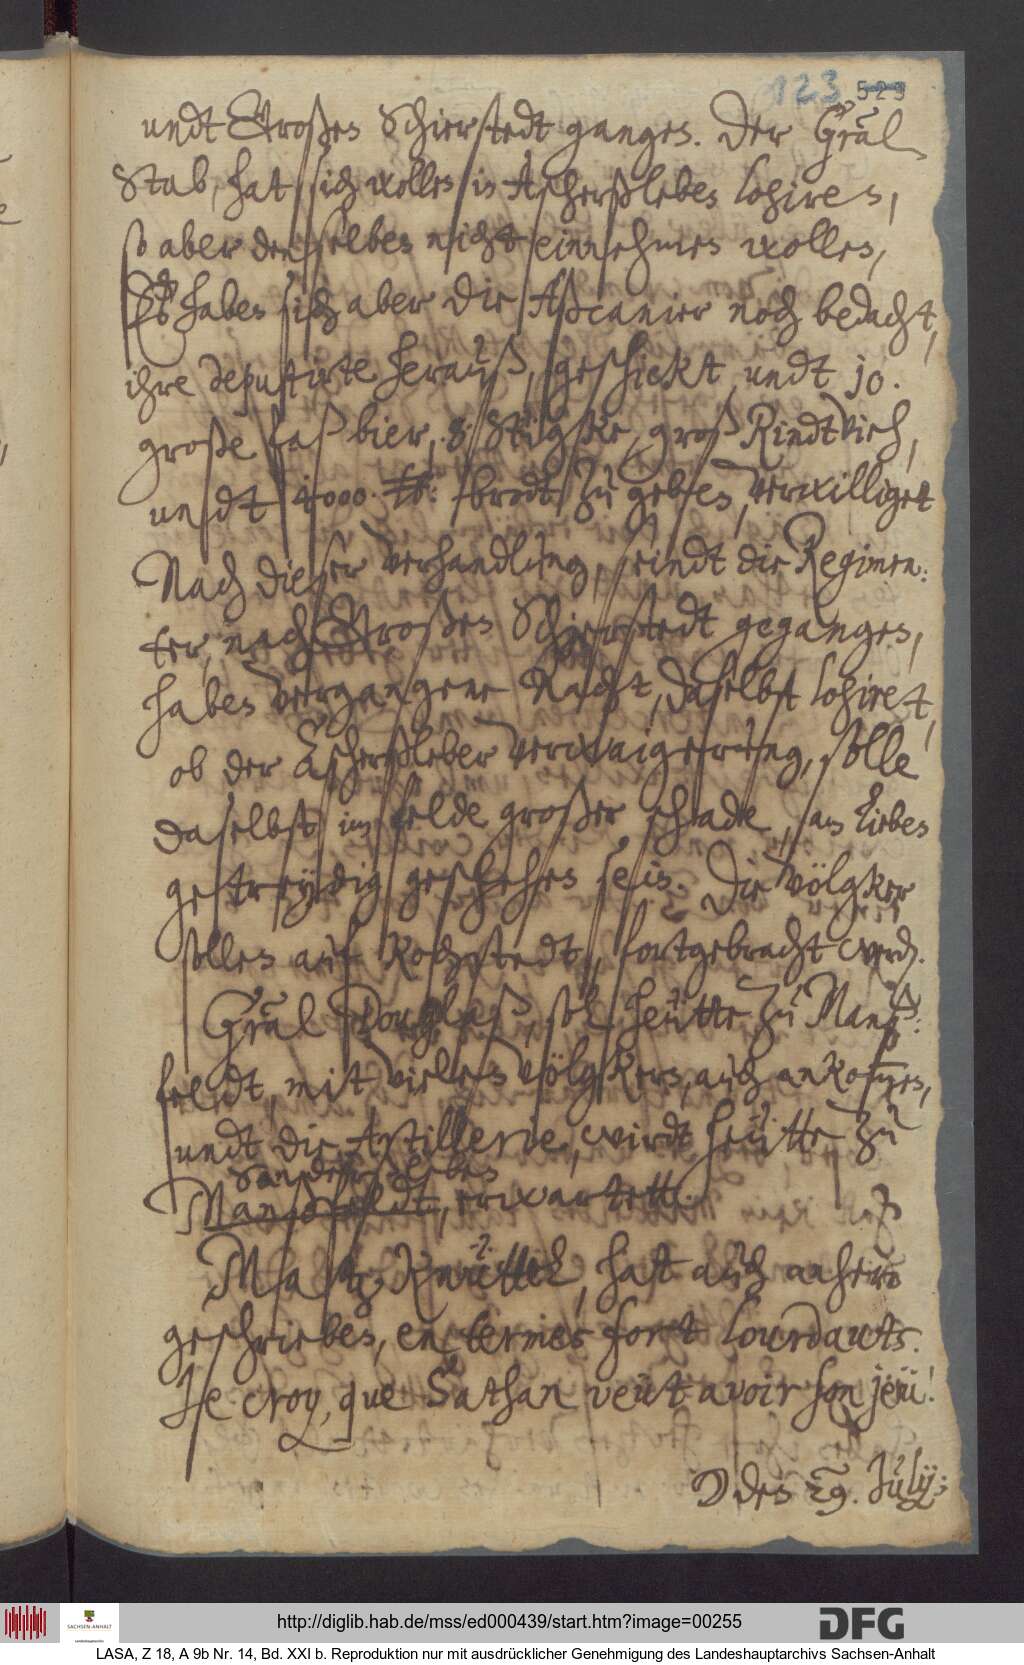 123 529
undt Großen Schierstedt gangen. Der Gral
Stab, hat sich wollen in Aschersleben logiren,
so aber denselben nicht einnehmen wollen,
Es haben sich aber die Ascanier noch bedacht,
ihre deputirte herauß, geschickt, undt 10.
große faß bier, 8. Stügke, groß Rindtvieh,
undt 4000. {{tb}}: brodt zu geben, verwilliget
Nach dieser verhandlung, seindt die Regimen:
ter, nach Großen Schierstedt gegangen,
haben vergangene Nacht, daselbst logiret,
ob der Aschersleber verwaigerung, solle
daselbst im felde großer schade, am Lieben
getreydig geschehen sein. Die völgker
sollen auf Kochstedt, fortgebracht werd.
Gral Douglaß, sol heütte zu Manß:
feldt, mit vielen völgkern, auch ankommen,
undt die Artillerie, wirdt heütte zu
Sandersleben
Manßfeldt, erwartett.
Matz Knüttel, hatt auch anhero
geschrieben, en termes fort lourdauts.
Je croy, que Sathan veut avoir son jeu!
den 29. July:
http://diglib.hab.de/mss/ed000439/start.htm?image=00255
SACHSEN-ANHALT
DFG
LASA, Z 18, A 9b Nr. 14, Bd. XXI b. Reproduktion nur mit ausdrücklicher Genehmigung des Landeshauptarchivs Sachsen-Anhalt